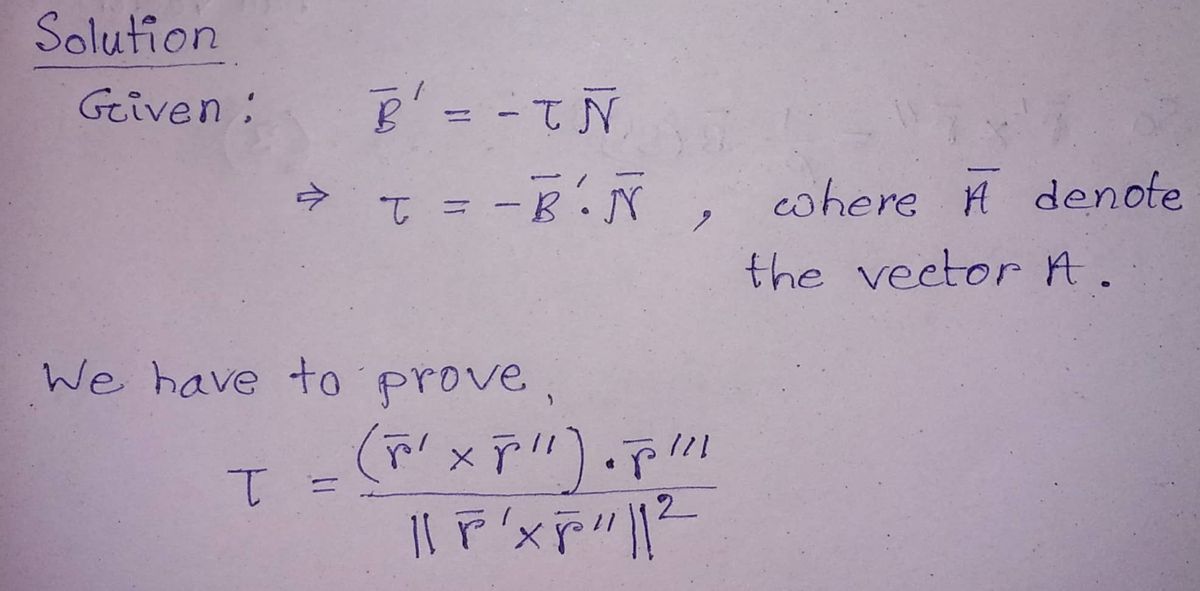 Solution
Given : B̅' = -τ N̅
⇒ τ = -B̅'. N̅ , where A̅ denote
the vector A.
We have to prove,
τ = (r̅' × r̅'') . r̅''' / || r̅' × r̅'' ||²